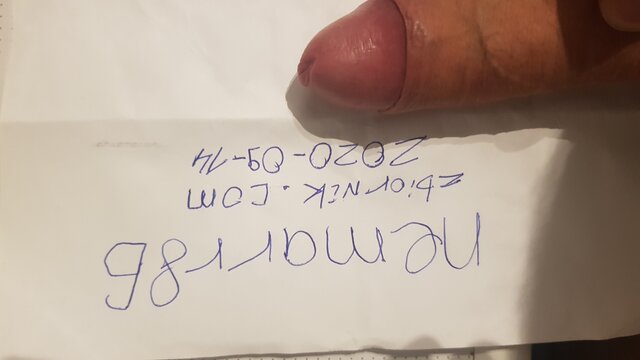 nemarr86
zbiornik.com
2020-09-14